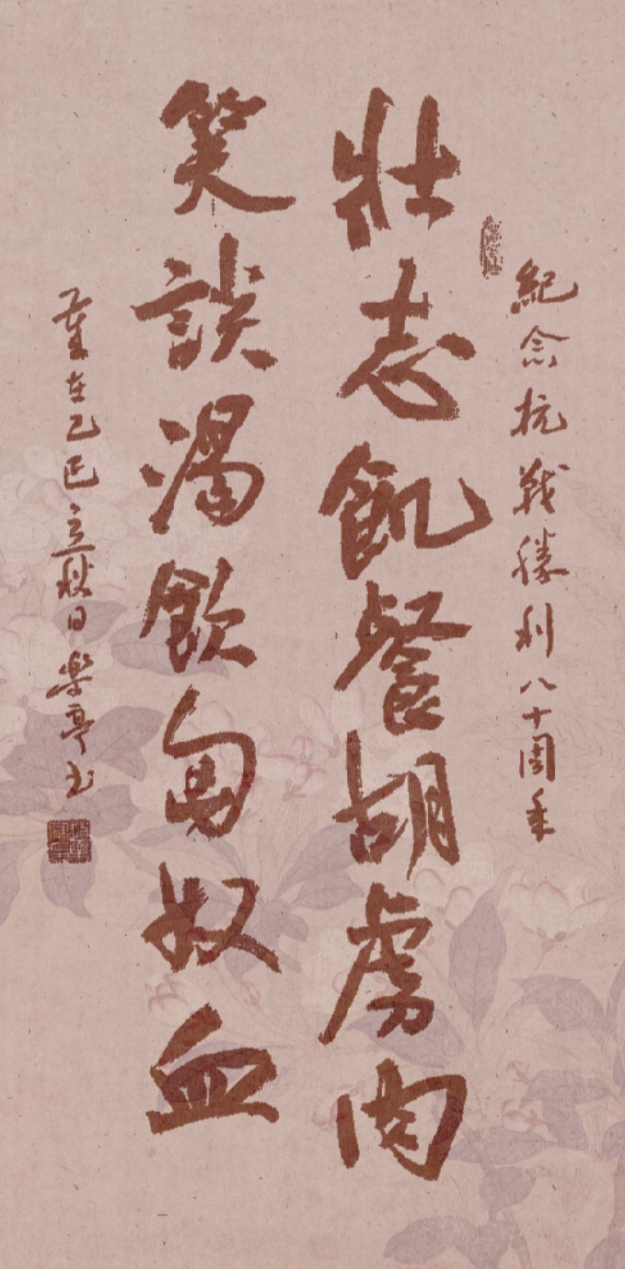 紀念抗戰勝利八十周年
壯志飢餐胡虜肉
笑談渴飲匈奴血
歲在乙巳立秋日樂亭書